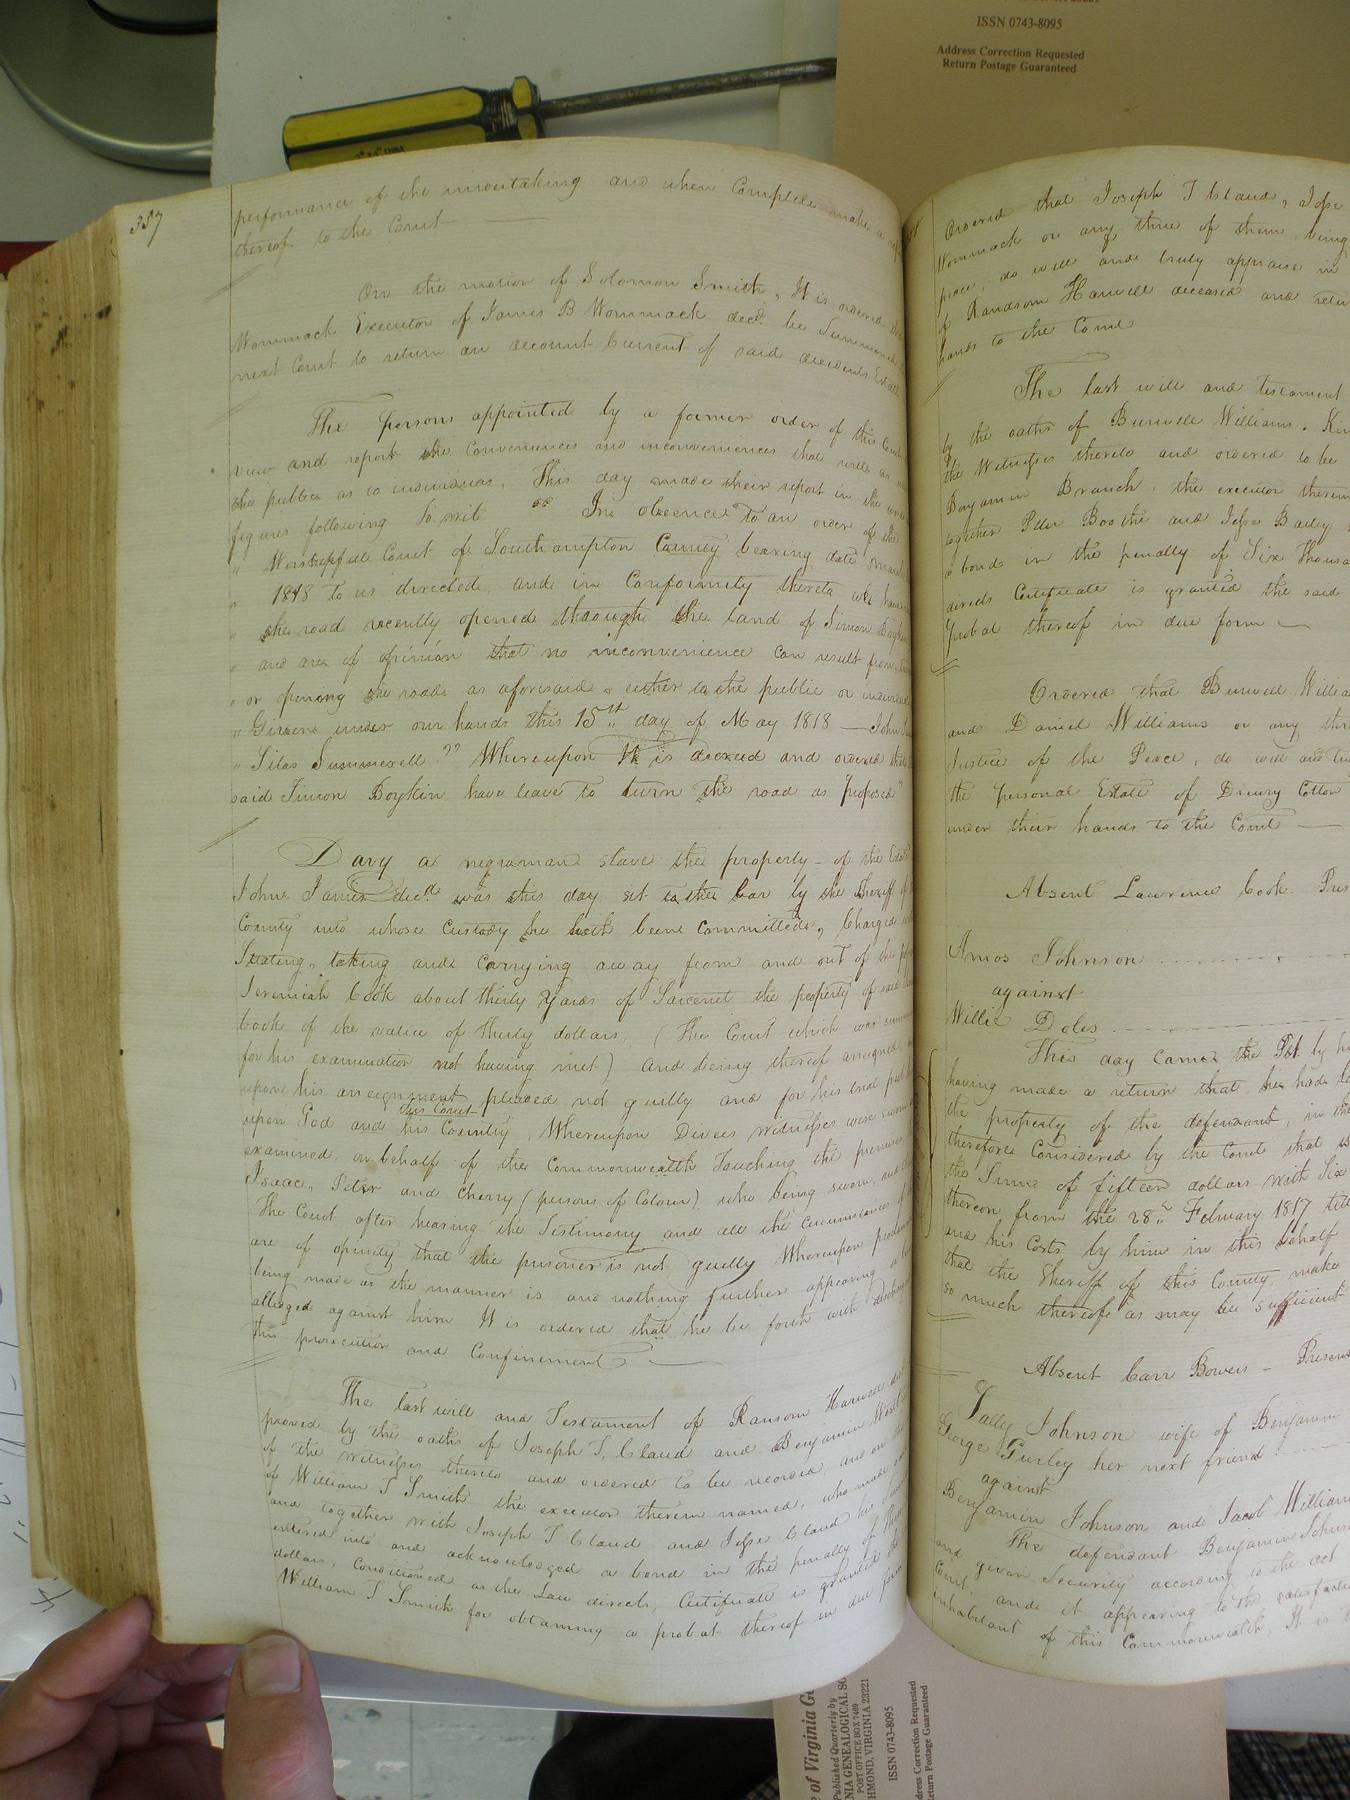 ISSN 0743-8095
Address Correction Requested
Return Postage Guaranteed
337
performance of the undertaking and when Complete make a
thereof to the Court
On the motion of Solomon Smith, It is ordered
Wommack Executor of James B Wommack decd. be Summoned
next Court to return an account Current of said decedents Estate
The persons appointed by a former order of this Court
view and report the Conveniences and inconveniences that will
the public as to individuals, This day made their report in the words
figures following To wit " In obedience to an order of the
" Worshipfull Court of Southampton County bearing date March
" 1818 to us directed and in Conformity thereto we have
" the road recently opened through the land of Simon Boykin
" and are of opinion that no inconvenience can result from
" or opening the road as aforesaid, either to the public or individuals
" Given under our hands this 15th day of May 1818 — John
" Silas Summerell " Whereupon It is decreed and ordered that
said Simon Boykin have leave to turn the road as proposed
Davy a negroman slave the property of the Estate
John James decd. was this day set to the bar by the Sheriff of
County into whose Custody he hath been Committed, Charged
Stealing, taking and Carrying away from and out of the
Jeremiah Cook about thirty yards of Sarcenet the property of said
Cook of the value of thirty dollars, (The Court which was
for his examination not having met) and being thereof arraigned
upon his arraignment pleaded not guilty and for his trial put
this Court
upon God and his Country, Whereupon Divers witnesses were sworn
examined on behalf of the Commonwealth Touching the premises
Isaac, Peter and Cherry (persons of Colour) who being sworn, and
The Court after hearing the Testimony and all the circumstances of
are of opinity that the prisoner is not guilty Whereupon proclamation
being made as the manner is and nothing further appearing or
alledged against him It is ordered that he be forth with discharged
this prosecution and Confinement
The last will and Testament of Ransom Harwell
proved by the oaths of Joseph T. Claud and Benjamin
of the witnesses thereto and ordered to be recorded, and on
of William T Smith the executor therein named, who made
and together with Joseph T Claud and Jesse Claud his
entered into and acknowledged a bond in the penalty of
dollars, Conditioned as the Law directs, Certificate is granted the
William T Smith for obtaining a probat thereof in due form
Ordered that Joseph T Claud, Jesse
Wommack or any three of them, being
peace, do well and truly appraise in
of Randsom Harwell deceased and return
hands to the Court
The last will and testament
by the oaths of Burwell Williams,
the Witnesses thereto and ordered to be
Benjamin Branch, the executor therein
together Peter Boothe and Jesse Bailey
a bond in the penalty of Six Thousand
directs Certificate is granted the said
probat thereof in due form
Ordered that Burwell Williams
and Daniel Williams or any three
Justice of the Peace, do well and truly
the personal Estate of Drewry Cotton
under their hands to the Court
Absent Lawrence Cook. Present
Amos Johnson
against
Willie Doles
This day came the Plt. by his
having made a return that he had
the property of the defendant, in the
therefore Considered by the Court that
the Sum of fifteen dollars with Six
thereon from the 28th February 1817 till
and his Costs by him in this behalf
that the Sheriff of this County, make
so much thereof as may be sufficient
Absent Carr Bowers - Present
Sally Johnson wife of Benjamin
George Gurley her next friend
against
Benjamin Johnson and Jacob Williams
The defendant Benjamin Johnson
and given Security according to the act
Court and it appearing to the satisfaction
inhabitant of this Commonwealth, It is
Published Quarterly by
POST OFFICE BOX 7469
RICHMOND, VIRGINIA 23221
ISSN 0743-8095